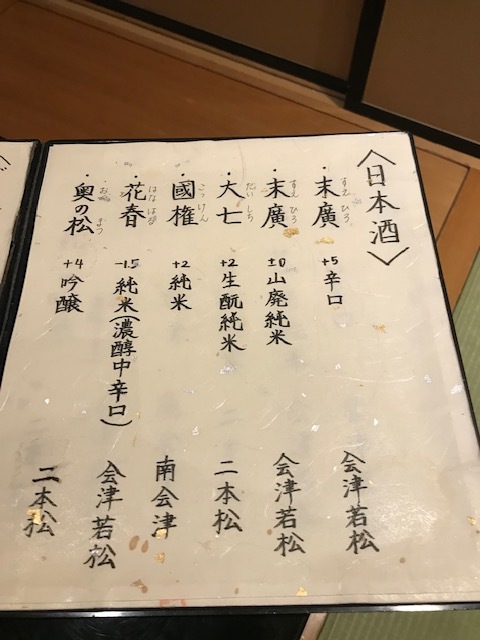 〈日本酒〉
・末廣 すえひろ +5 辛口 会津若松
・末廣 すえひろ ±0 山廃純米 会津若松
・大七 だいしち +2 生酛純米 二本松
・國権 こっけん +2 純米 南会津
・花春 はなはる -1.5 純米(濃醇中辛口) 会津若松
・奥の松 おくのまつ +4 吟醸 二本松